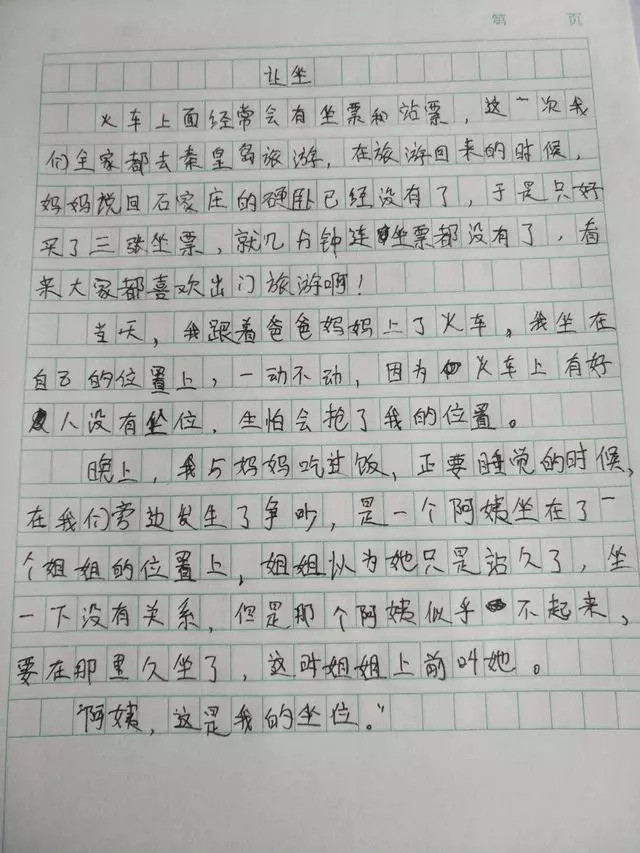 第 页
让坐
火车上面经常会有坐票和站票，这一次我
们全家都去秦皇岛旅游，在旅游回来的时候，
妈妈说回石家庄的硬卧已经没有了，于是只好
买了三张坐票，就几分钟连坐票都没有了，看
来大家都喜欢出门旅游啊！
当天，我跟着爸爸妈妈上了火车。我坐在
自己的位置上，一动不动，因为火车上有好
人没有坐位，生怕会抢了我的位置。
晚上，我与妈妈吃过饭，正要睡觉的时候，
在我们旁边发生了争吵，是一个阿姨坐在了一
个姐姐的位置上，姐姐以为她只是站久了，坐
一下没有关系，但是那个阿姨似乎不起来，
要在那里久坐了，这时姐姐上前叫她。
“阿姨，这是我的坐位。”